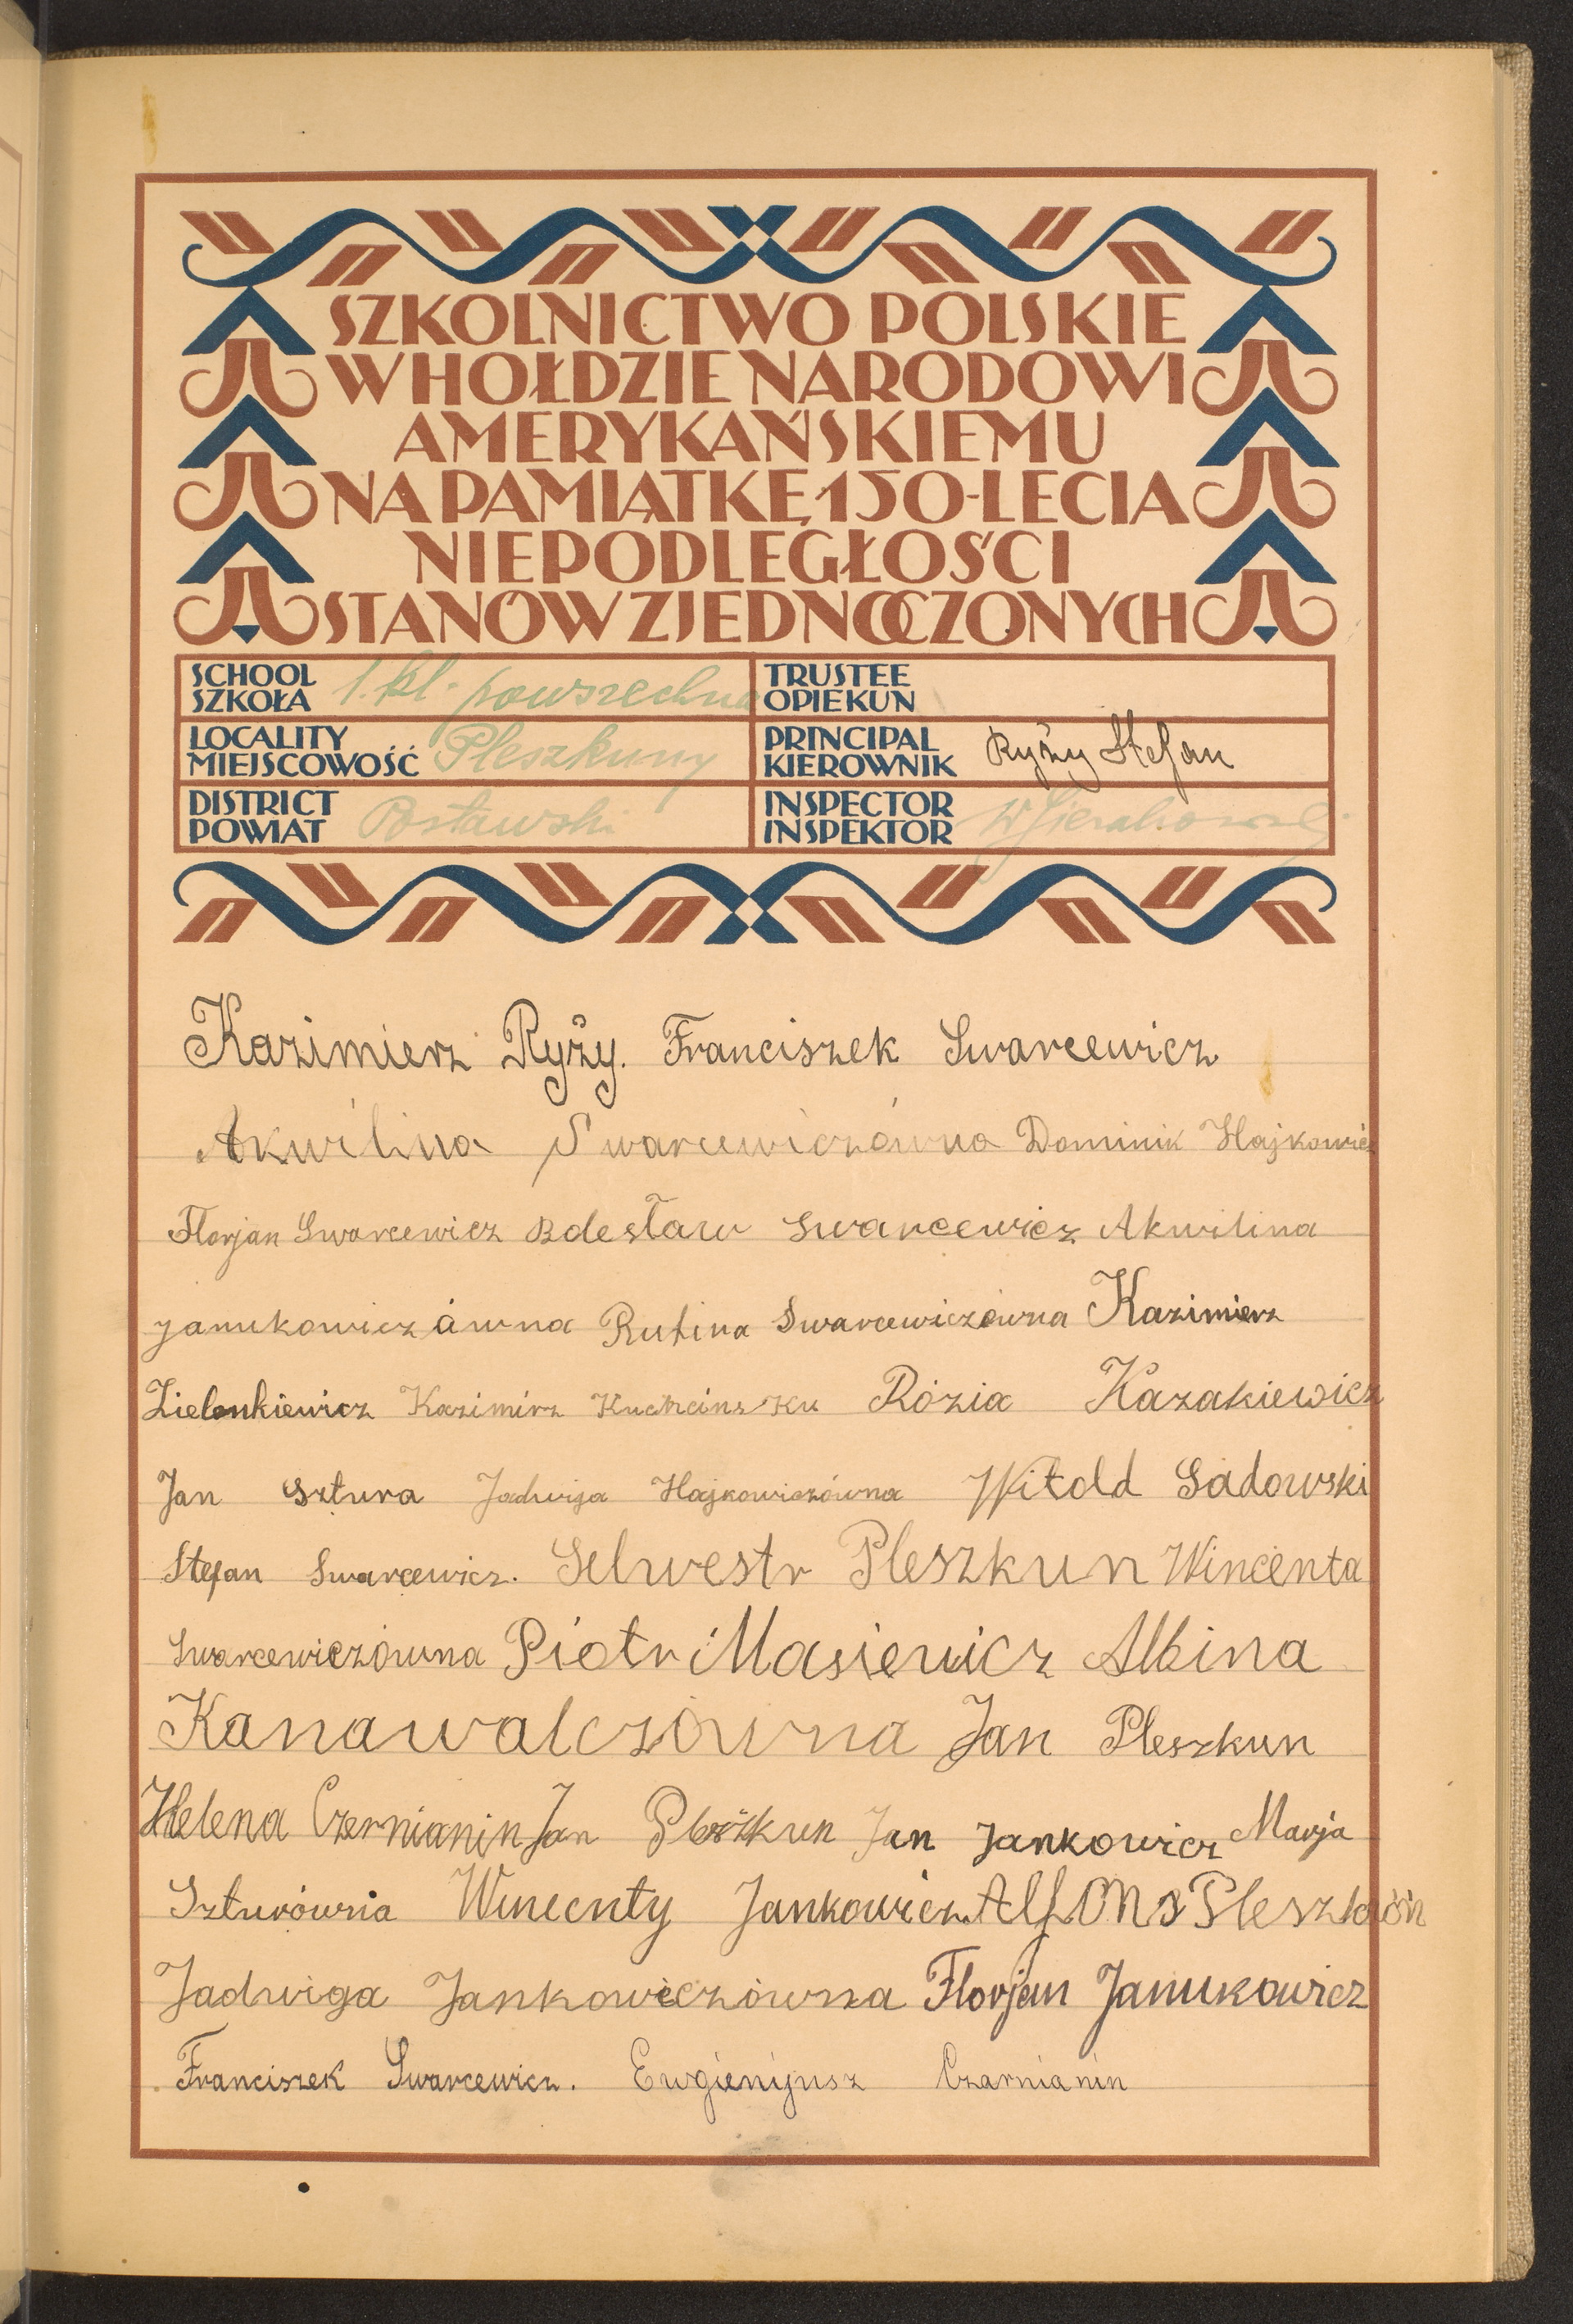 SZKOLNICTWO POLSKIE
W HOŁDZIE NARODOWI
AMERYKAŃSKIEMU
NA PAMIĄTKĘ 150-LECIA
NIEPODLEGŁOŚCI
STANÓW ZJEDNOCZONYCH
SCHOOL SZKOŁA 1. kl. powszechna
TRUSTEE OPIEKUN
LOCALITY MIEJSCOWOŚĆ Pleszkuny
PRINCIPAL KIEROWNIK Ryży Stefan
DISTRICT POWIAT Postawski
INSPECTOR INSPEKTOR
Kazimierz Ryży. Franciszek Swarcewicz
Akwilina Swarcewiczówna Dominik Hajkowicz
Florjan Swarcewicz Bolesław Swarcewicz Akwilina
Janukowiczówna Rufina Swarcewiczówna Kazimierz
Zielonkiewicz Kazimirz Rózia Kazakiewicz
Jan Sztura Jadwiga Hajkowiczówna Witold Sadowski
Stefan Swarcewicz. Selwestr Pleszkun Wincenta
Swarcewiczówna Piotr Masiewicz Albina
Kanawalczówna Jan Pleszkun
Helena Czernianin Jan Pleszkun Jan Jankowicz Marja
Szturówna Wincenty Jankowicz. Alfons Pleszkun
Jadwiga Jankowiczówna Florjan Janukowicz
Franciszek Swarcewicz. Ewgienijusz Czarnianin